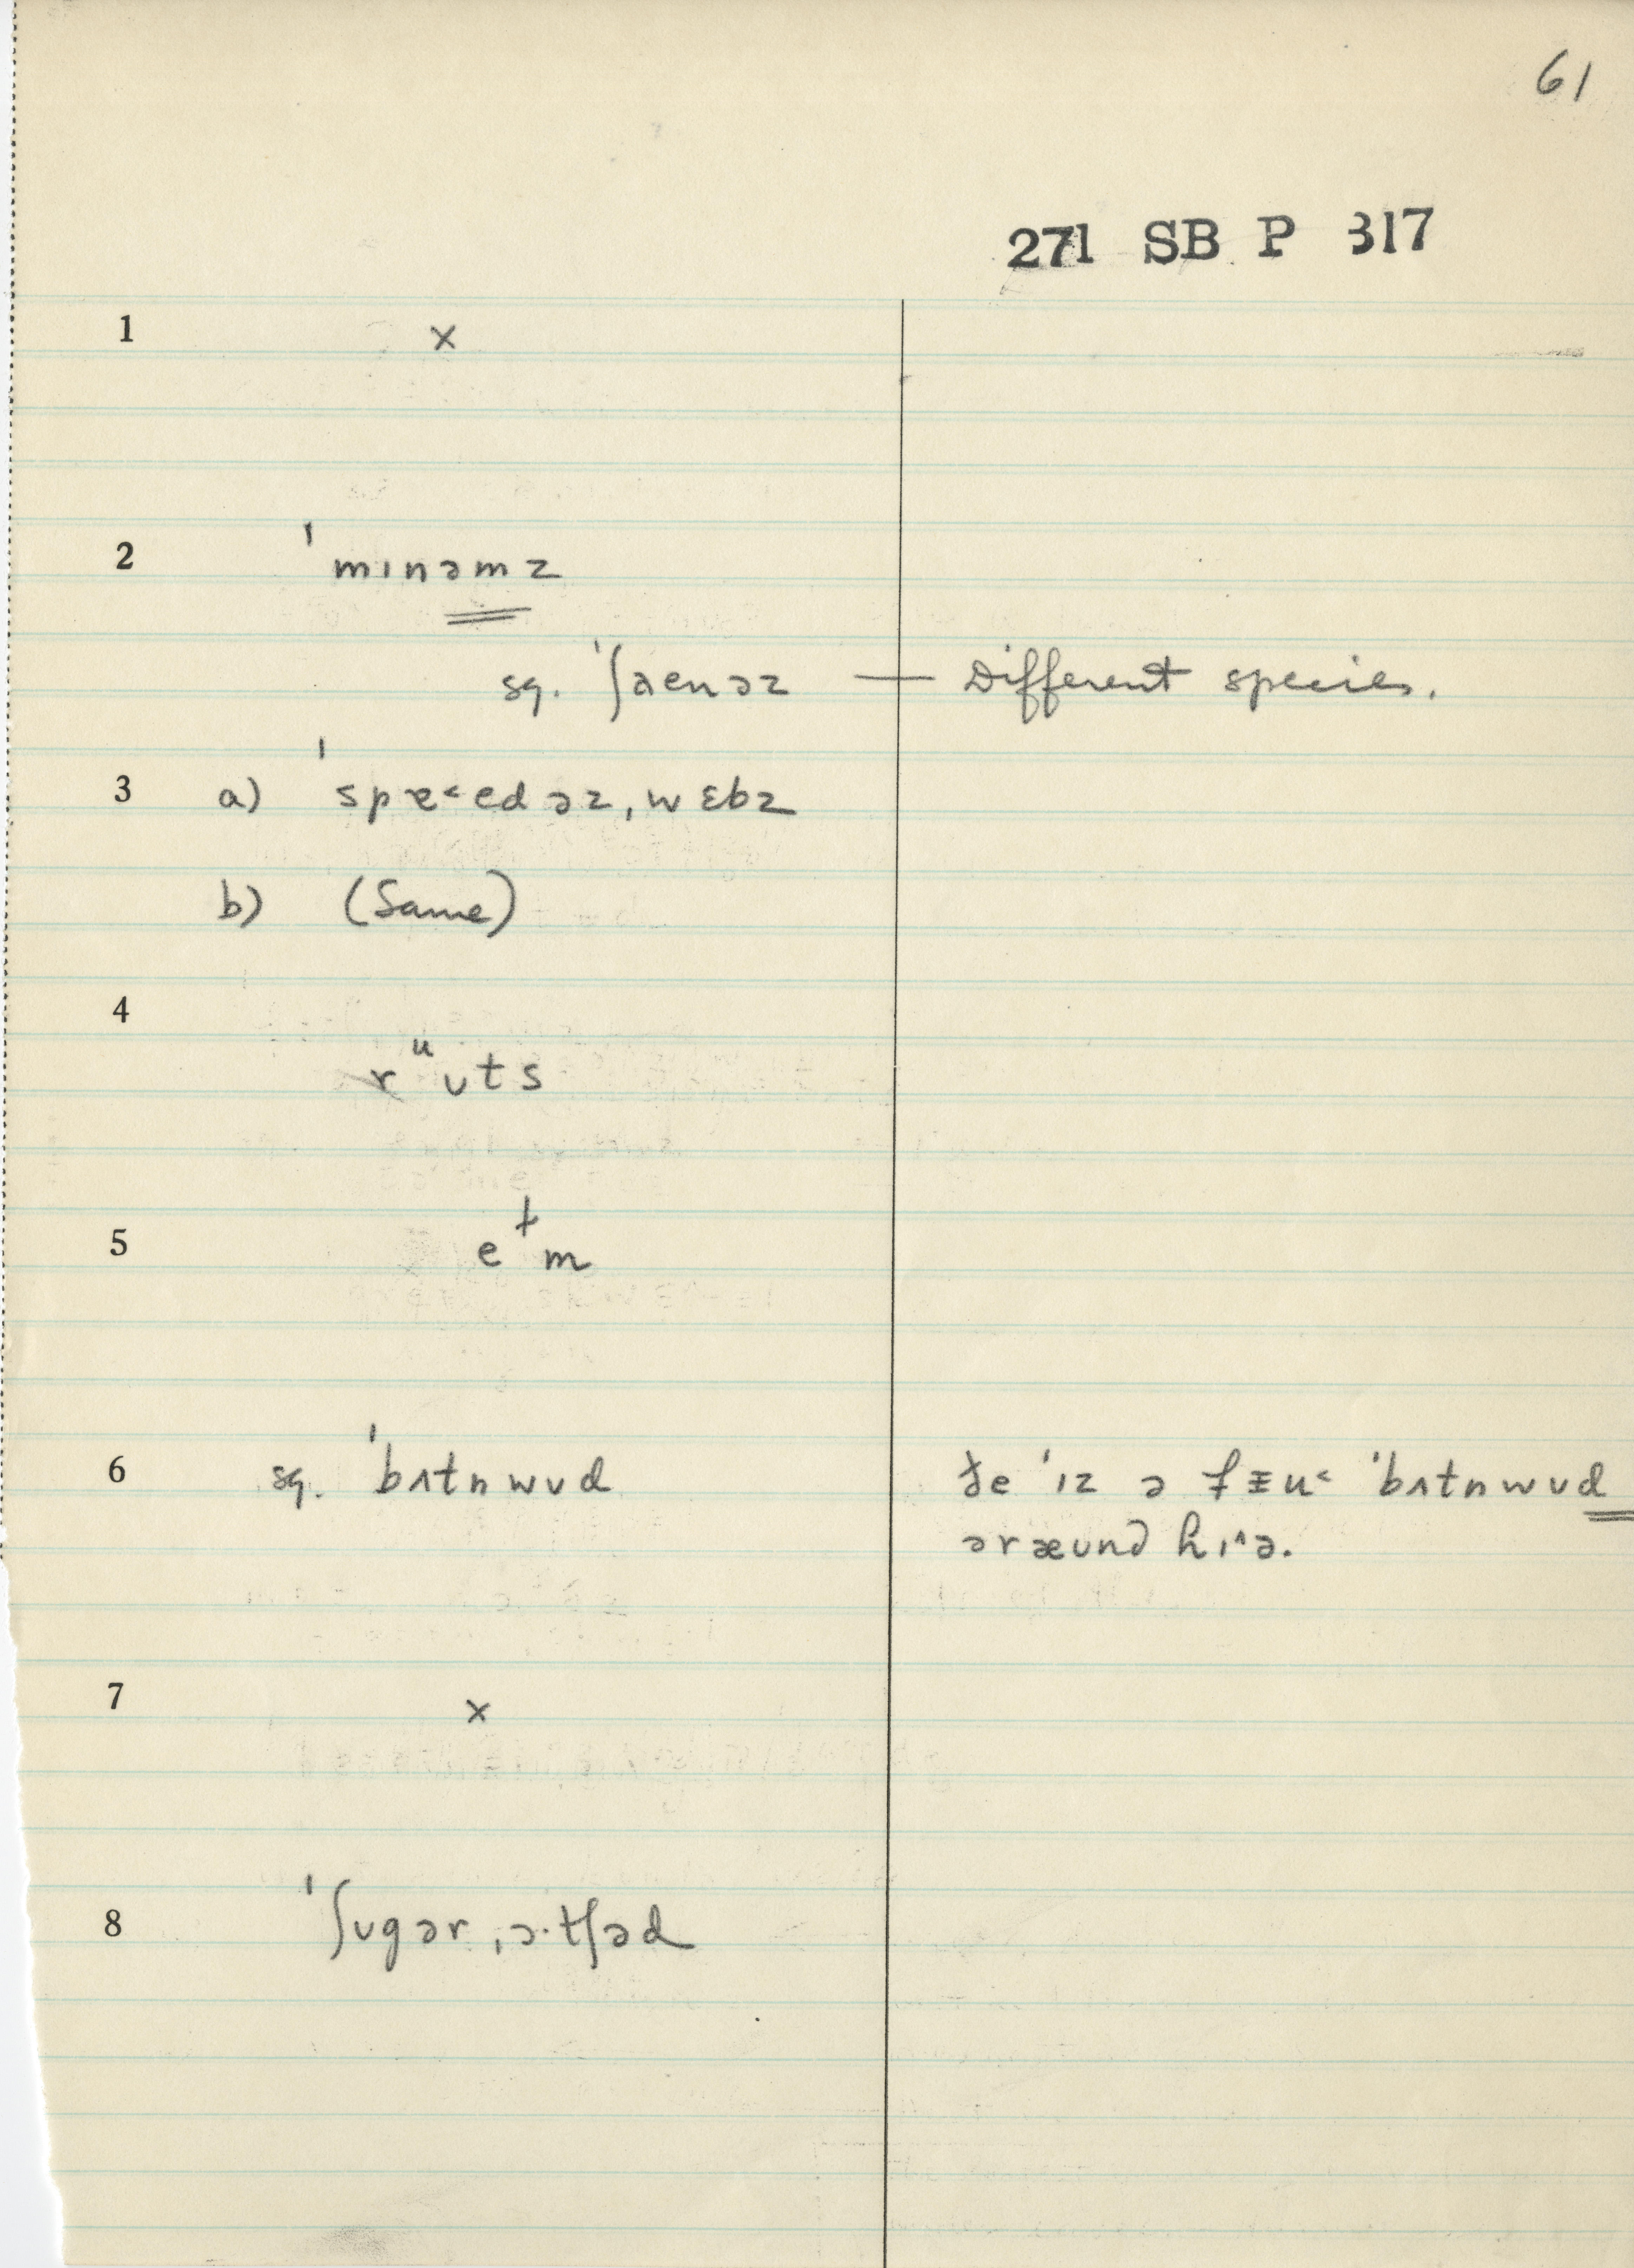 61
271 SB P 317
1 ×
2 ˈmɪnəmz
sg. ˈʃaenəz — Different species.
3 a) ˈspɐ˂edəz ˌwɛbz
b) (Same)
4 rᵘʊts
5 eɫm
6 sg. ˈbʌtnwʊd
ˈbʌtnwʊd
əræʊnd hɪ^ə.
7 ×
8 ˈʃʊgər ˌɔ·tʃəd